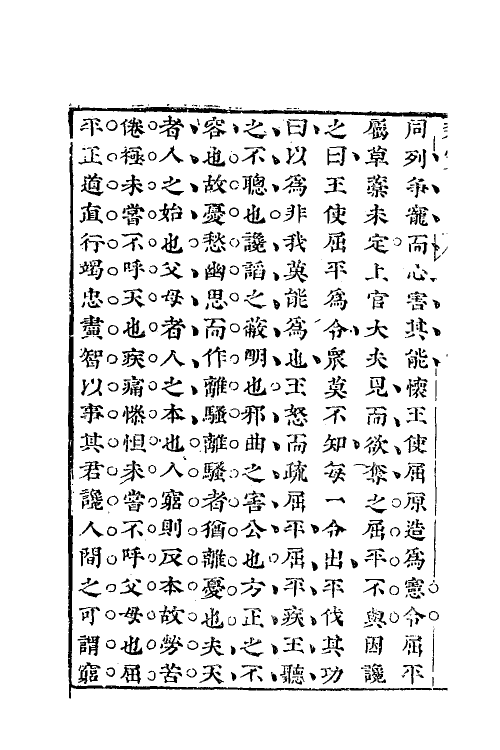 同列爭寵而心害其能懷王使屈原造爲憲令屈平
屬草藁未定上官大夫見而欲奪之屈平不與因讒
之曰王使屈平爲令衆莫不知每一令出平伐其功
曰以爲非我莫能爲也王怒而疏屈平屈平疾王聽
之不聰也讒謟之蔽明也邪曲之害公也方正之不
容也故憂愁幽思而作離騷離騷者猶離憂也夫天
者人之始也父母者人之本也人窮則反本故勞苦
倦極未嘗不呼天也疾痛慘怛未嘗不呼父母也屈
平正道直行竭忠盡智以事其君讒人間之可謂窮